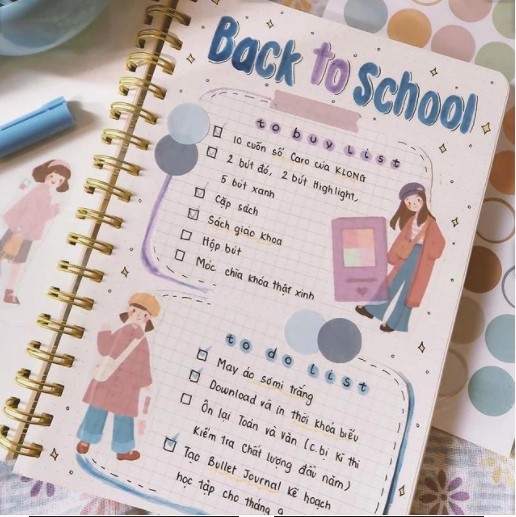 Back to School
to buy list
10 cuốn sổ Caro của KLONG
2 bút đỏ, 2 bút Highlight,
5 bút xanh
Cặp sách
Sách giáo khoa
Hộp bút
Móc chìa khóa thật xinh
to do list
May áo sơmi trắng
Download và in thời khóa biểu
Ôn lại Toán và Văn (c.bị kì thi
Kiểm tra chất lượng đầu năm)
Tạo Bullet Journal kế hoạch
học tập cho tháng 9